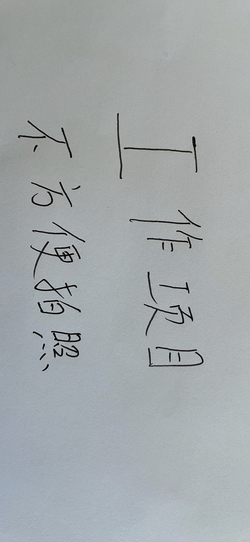 工作项目
不方便拍照